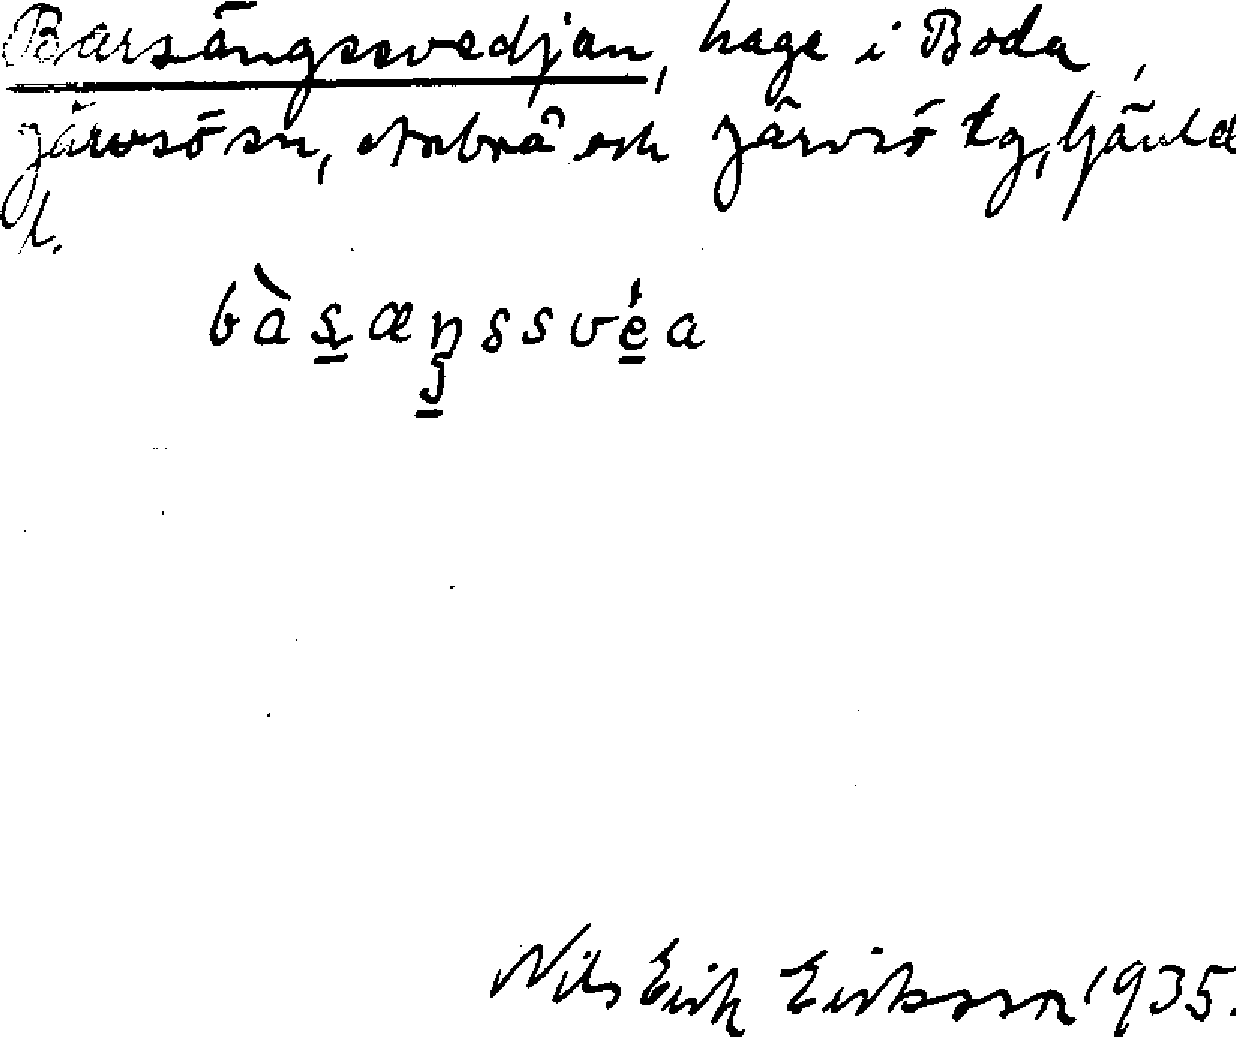 Barsängssvedjan, hage i Boda,
Järvsö sn, Arbrå och Järvsö tg, Gävle
l.
bàsæŋssvéa
Nils Erik Eriksson 1935.